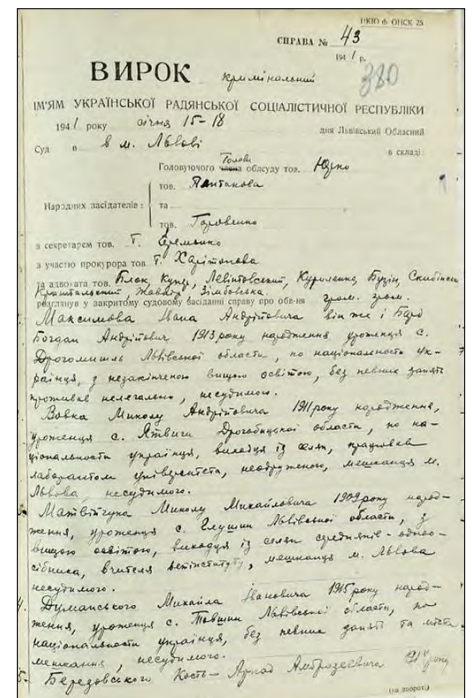 НКЮ ф. ОНСК 25
СПРАВА № 43
1941 р.
380
ВИРОК кримінальний
ІМ'ЯМ УКРАЇНСЬКОЇ РАДЯНСЬКОЇ СОЦІАЛІСТИЧНОЇ РЕСПУБЛІКИ
1941 року січня 15-18 дня Львівський Обласний
Суд в в м. Львові в складі:
Головуючого Голови члена облсуду тов. Юзко
тов.
Народних засідателів: та
тов.
з секретарем тов. Т. Еременко
з участю прокурора тов. т. Харітонова
та адвоката тов. Блок,
розглянув у закритому судовому засіданні справу про обвин.
Максимова Івана Андрійовича він же і Бард
Богдан Андрійович 1913 року народження уроженця с.
Дрогомишль Львівської області, по національності ук-
раїнця, з незакінченою вищою освітою, без певних занять
проживав нелегально, несудимого.
Вовка Миколу Андрійовича 1911 року народження,
уроженця с. Ятвяги Дрогобицької області, по на-
ціональності українця, виходця із селян, працював
лаборантом університета, неодруженого, мешканця м.
Львова, несудимого.
Матвійчука Миколу Михайловича 1909 року народ-
ження, уроженця с. Глушин Львівської області, з
вищою освітою, виходця із селян середняків-одноо-
сібника, вчителя ветінституту, мешканця м. Львова
несудимого.
4. Думанського Михайла Івановича 1915 року народ-
ження, уроженця с. Товшин Львівської області, по
національности українця, без певних занять та міста
мешкання, несудимого.
5. Березовського Кость-Аркад Амброзеевича року
(на звороті)